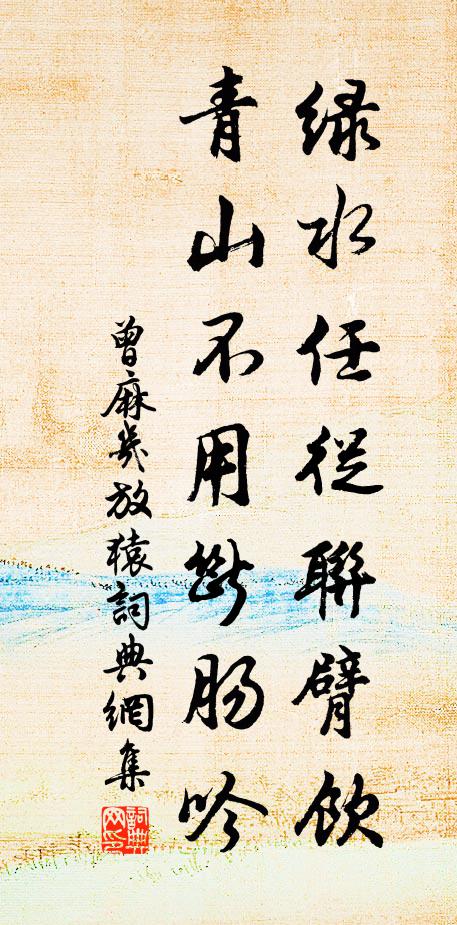 緑水任從聯臂飲
青山不用斷腸吟
曾麻幾放猿詞典網集